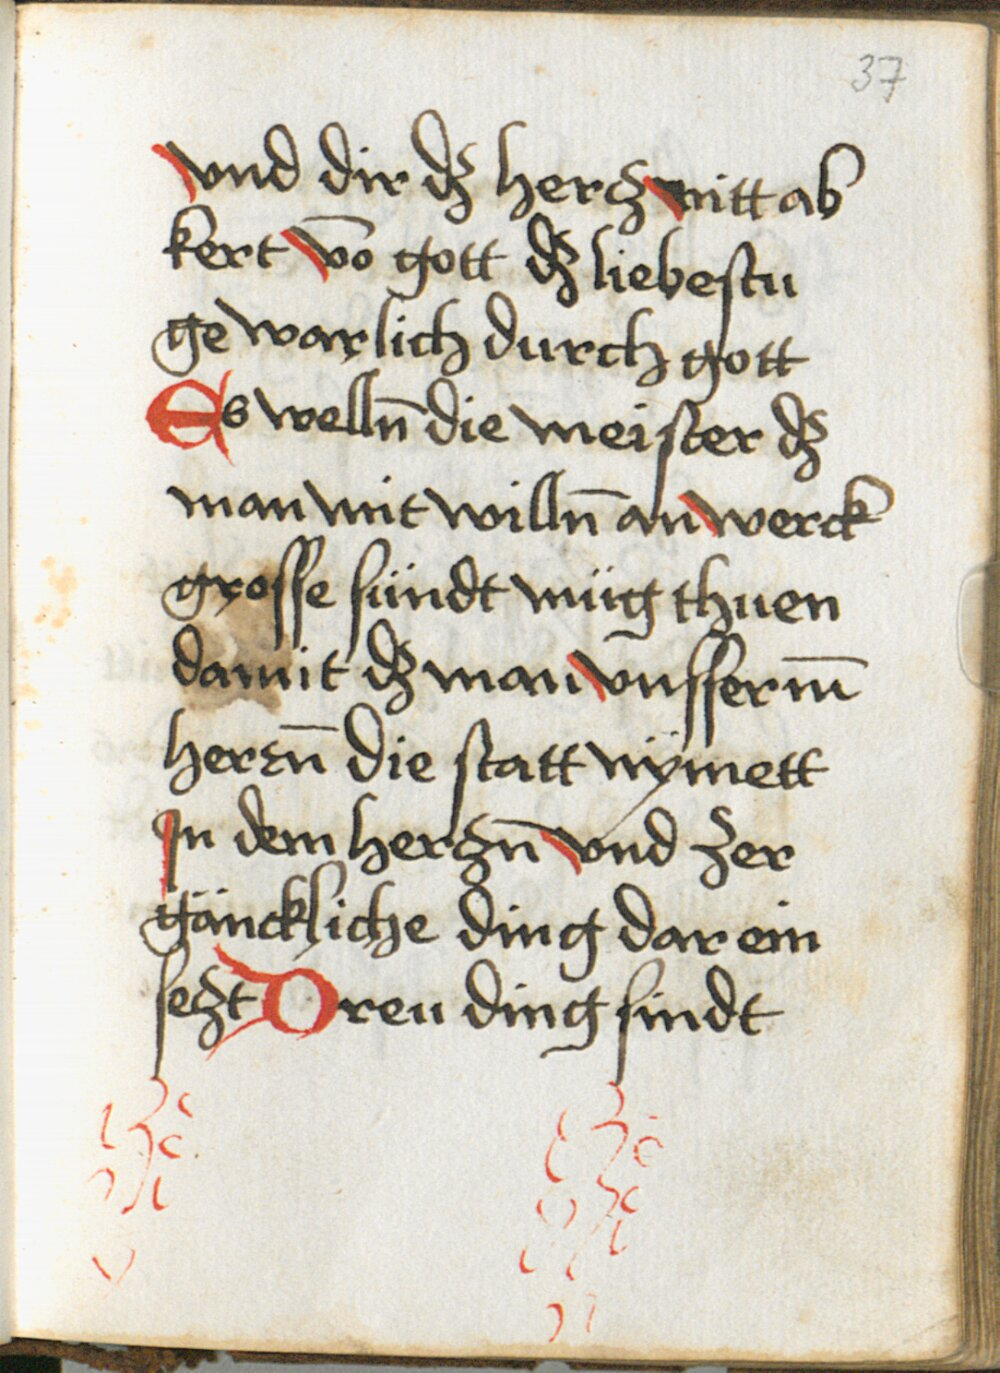 37
vnd dir dz hercz nitt ab
kert vō gott dz liebestu
ge warlich durch gott
Es welln̄ die meister dz
man mit willn̄ an werck
grosse sündt müg thuen
damit dz man vnsserm̄
herrn̄ die statt nÿmett
In dem herczn̄ vnd zer
gänckliche ding dar ein
seczt Dreu ding sindt